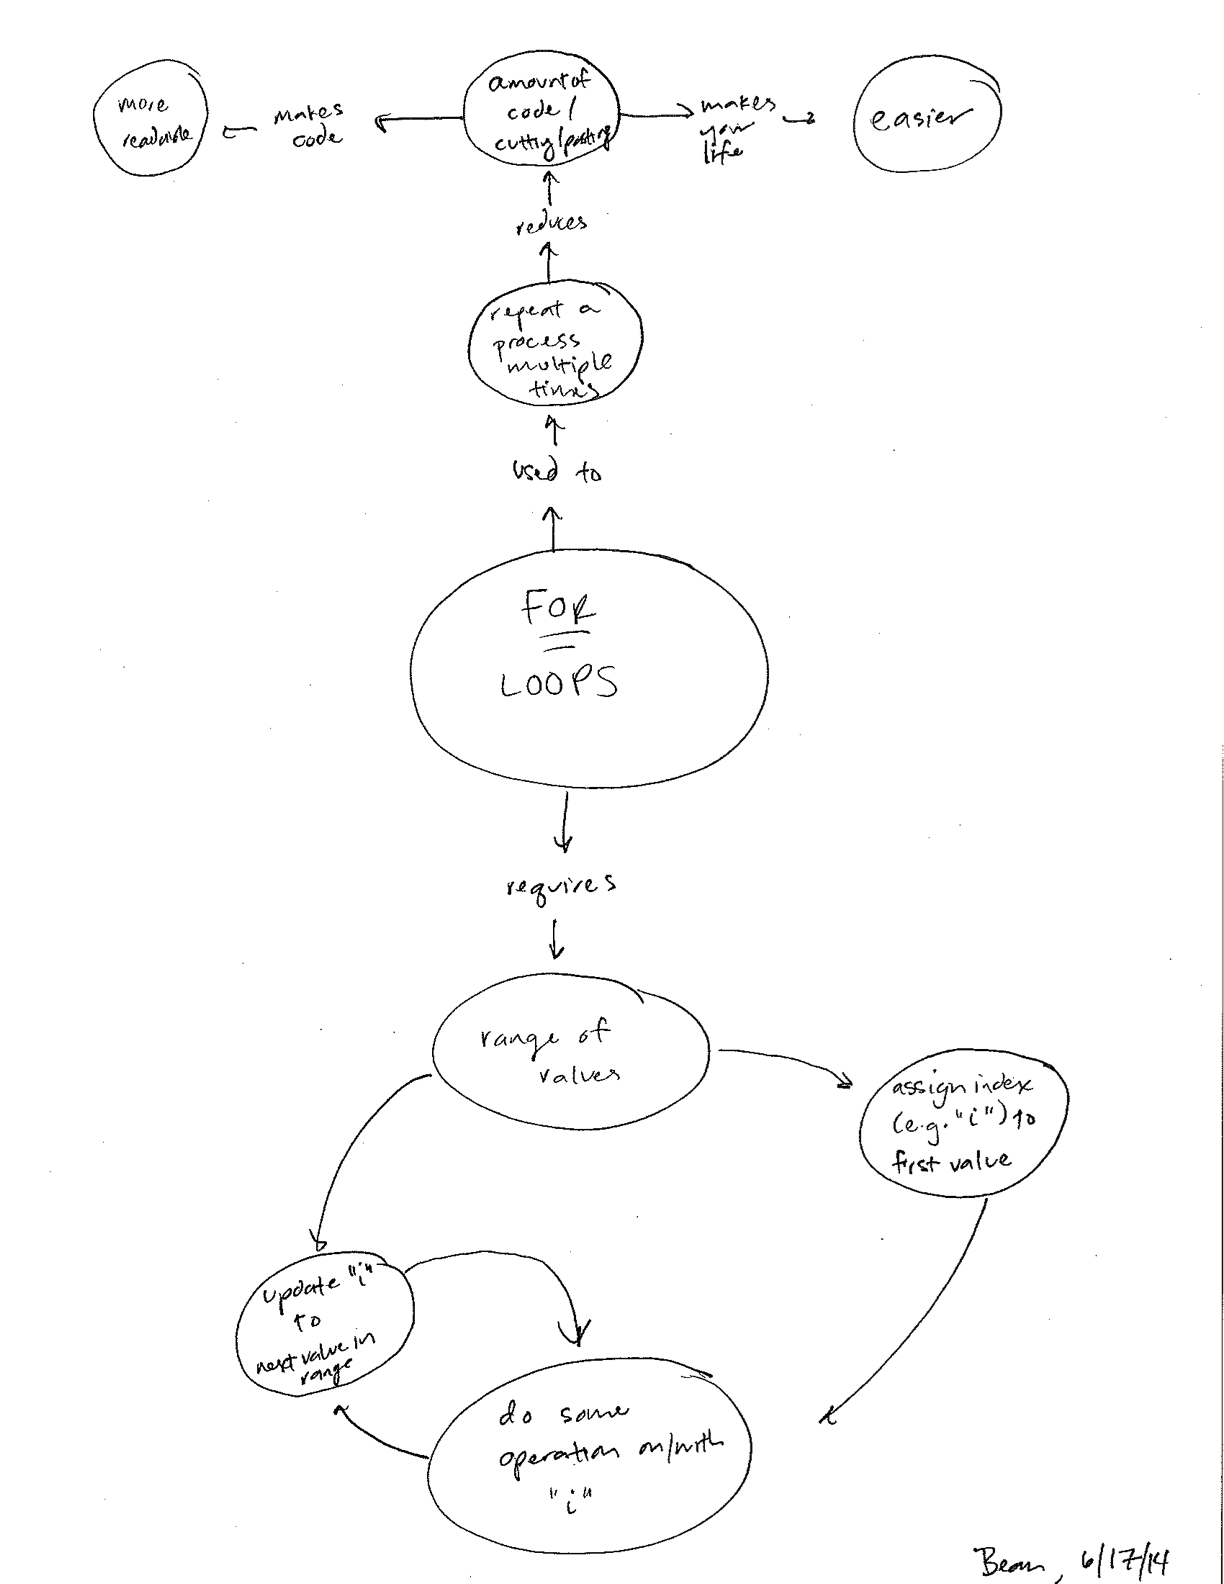 more
readable
makes
code
amount of
code/
cutting/pasting
makes
your
life
easier
reduces
repeat a
process
multiple
times
used to
FOR
LOOPS
requires
range of
values
assign index
(e.g. "i") to
first value
update "i"
to
next value in
range
do some
operation on/with
"i"
6/17/14